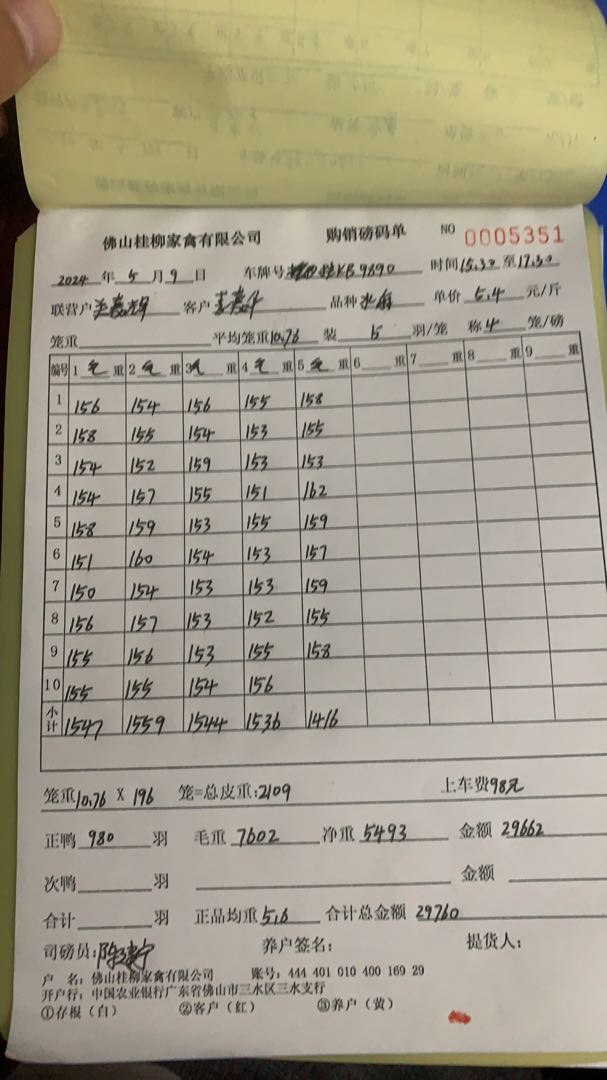 佛山桂柳家禽有限公司 购销磅码单 NO 0005351
2024年5月9日 车牌号 KB9890 时间15.30至17.30
联营户 客户 品种 单价5.4元/斤
笼重 平均笼重10.76 装15羽/笼 称4笼/磅
编号 1毛重 2毛重 3毛重 4毛重 5毛重 6重 7重 8重 9重
1 156 154 156 155 158
2 158 155 154 153 155
3 154 152 159 153 153
4 154 157 155 151 162
5 158 159 153 155 159
6 151 160 154 153 157
7 150 154 153 153 159
8 156 157 153 152 155
9 155 156 153 155 158
10 155 155 154 156
小计 1547 1559 1544 1536 1416
笼重10.76 X 196 笼=总皮重:2109 上车费98元
正鸭980羽 毛重7602 净重5493 金额29662
次鸭 羽 金额
合计 羽 正品均重5.6 合计总金额29760
司磅员: 养户签名: 提货人:
户 名: 佛山桂柳家禽有限公司 账号: 444 401 010 400 169 29
开户行: 中国农业银行广东省佛山市三水区三水支行
①存根(白) ②客户(红) ③养户(黄)